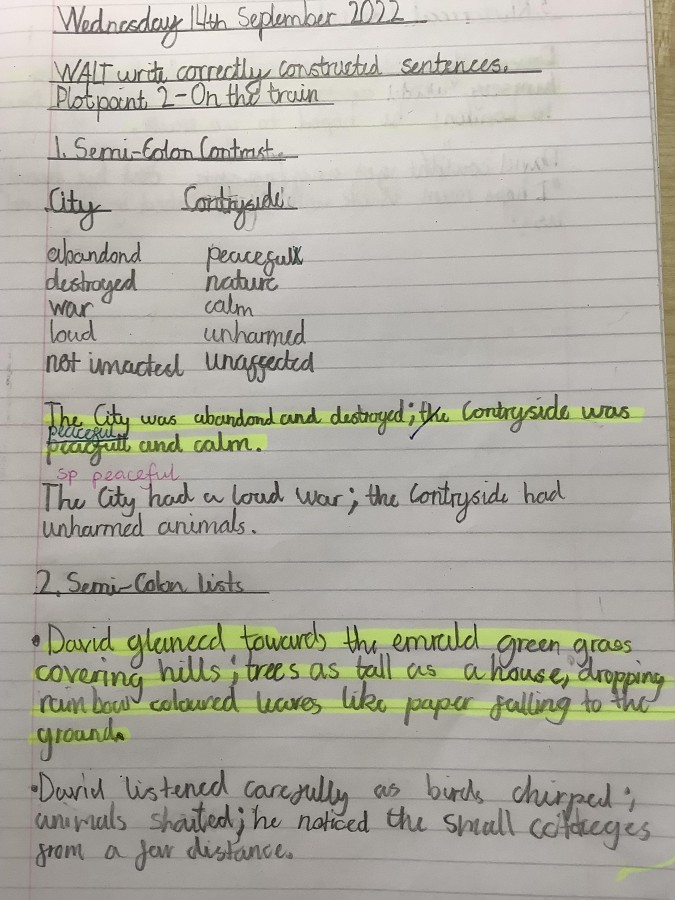 Wednesday 14th September 2022
WALT write correctly constructed sentences.
Plot point 2-On the train
1. Semi-Colon Contrast
City Contryside
abandond peacefull
destroyed nature
war calm
loud unharmed
not imacted unaffected
The City was abandond and destroyed; the Contryside was
peaceful
peacfull and calm.
sp peaceful
The City had a loud war; the Contryside had
unharmed animals.
2. Semi-Colon lists
• David glanced towards the emrald green grass
covering hills; trees as tall as a house, dropping
rainbow coloured leaves like paper falling to the
ground.
• David listened carefully as birds chirped;
animals shouted; he noticed the small
from a far distance.